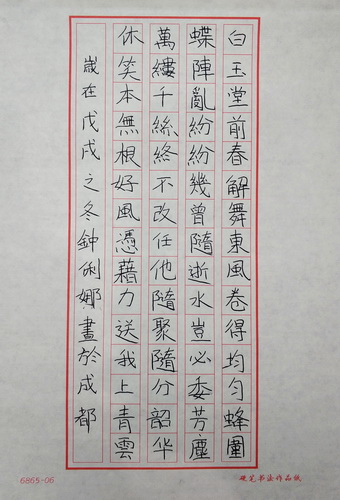 白玉堂前春解舞東風卷得均匀蜂圍
蝶陣亂紛紛幾曾隨逝水豈必委芳塵
萬縷千絲終不改任他隨聚隨分韶华
休笑本無根好風憑藉力送我上青雲
嵗在戊戌之冬鈡俐娜畫於成都
6865-06
硬笔书法作品纸